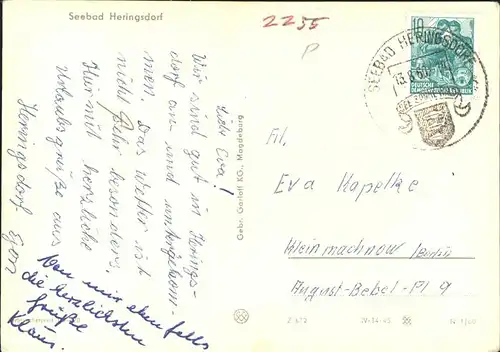 Seebad Heringsdorf
2255
P
Liebe Eva!
Wir sind gut in Herings-
dorf an- und untergekom-
men. Das Wetter ist
nicht sehr besonders.
Hier mit herzliche
Urlaubsgrüße aus
Heringsdorf
Von mir ebenfalls
die herzlichsten
Grüße
Klaus.
Gebr. Garloff KG., Magdeburg
10
DEUTSCHE
DEMOKRATISCHE REPUBLIK
SEEBAD HERINGSDORF
Frl.
Eva Kapelke
Kleinmachnow/Berlin
August-Bebel-Pl 9
IV-14-45